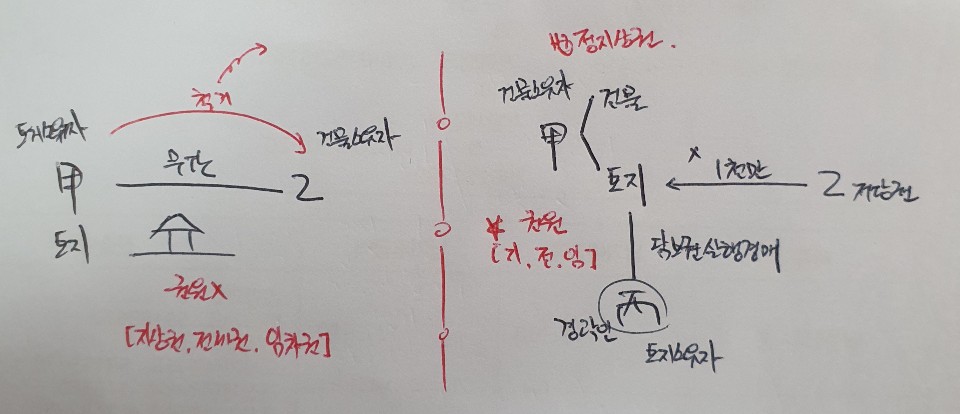 철거
토지소유자
건물소유자
甲
무단
乙
토지
권원X
[지상권, 전세권, 임차권]
법정지상권.
건물소유자
건물
甲
토지
x
1천만
乙 저당권
* 권원
[지, 전, 임]
담보권실행경매
경락인
丙
토지소유자